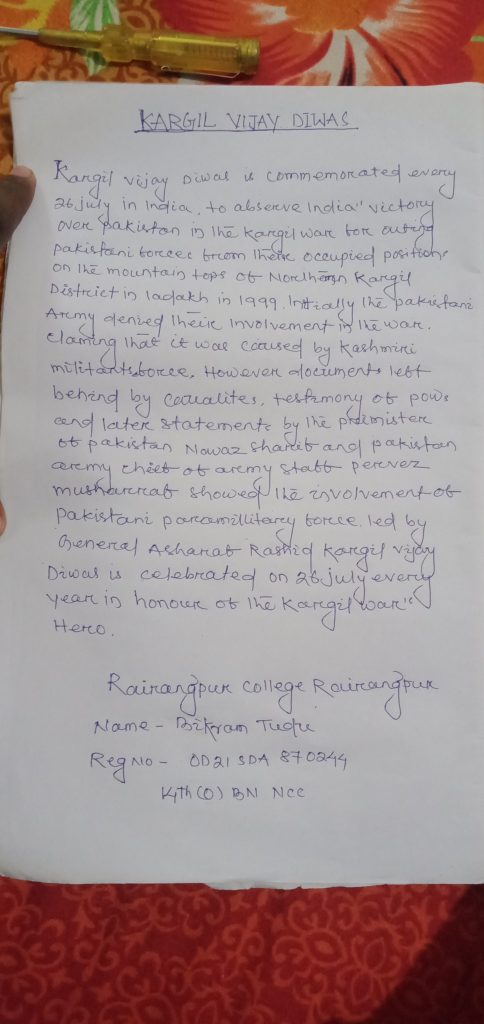 KARGIL VIJAY DIWAS
Kargil vijay Diwas is commemorated every
26 july in India, to abserve India" victory
over pakistan in the Kargil war for outing
pakistani forces from their occupied positions
on the mountain tops of Northern Kargil
District in ladakh in 1999. Initially the pakistani
Army denied their involvement in the war.
claiming that it was caused by Kashmiri
militants force. However documents left
behind by caualites, testimony of pows
and later statements by the primister
of pakistan Nawaz sharif and pakistan
army chief of army staff pervez
musharraf showed the involvement of
Pakistani paramillitary force. led by
General Asharaf Rashid Kargil vijay
Diwas is celebrated on 26 july every
year in honour of the Kargil war"s
Hero.
Rairangpur college Rairangpur
Name - Bikram Tudu
Reg No - OD21 SDA 870244
14th (O) BN NCC